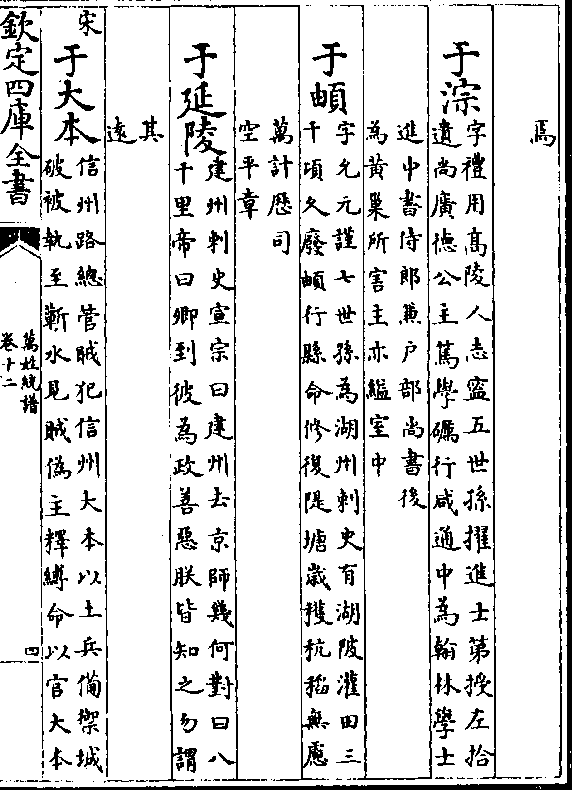 焉
于淙
字禮用髙陵人志寧五世孫擢進士第授左拾
遺尚廣德公主篤學礪行咸通中為翰林學士
進中書侍郎兼戶部尚書後
為黃巢所害主亦縊室中
于頔
字允元謹七世孫為湖州刺史有湖陂灌田三
千頃久廢頔行縣命修復隄塘歳穫秔稻無慮
萬計歴司
空平章
于延陵
建州刺史宣宗曰建州去京師幾何對曰八
千里帝曰卿到彼為政善惡朕皆知之勿謂
其
逺
宋
于大本
信州路總管賊犯信州大本以土兵備禦城
破被執至蘄水見賊偽主釋縛命以官大本
欽定四庫全書
萬姓統譜
卷十二
四